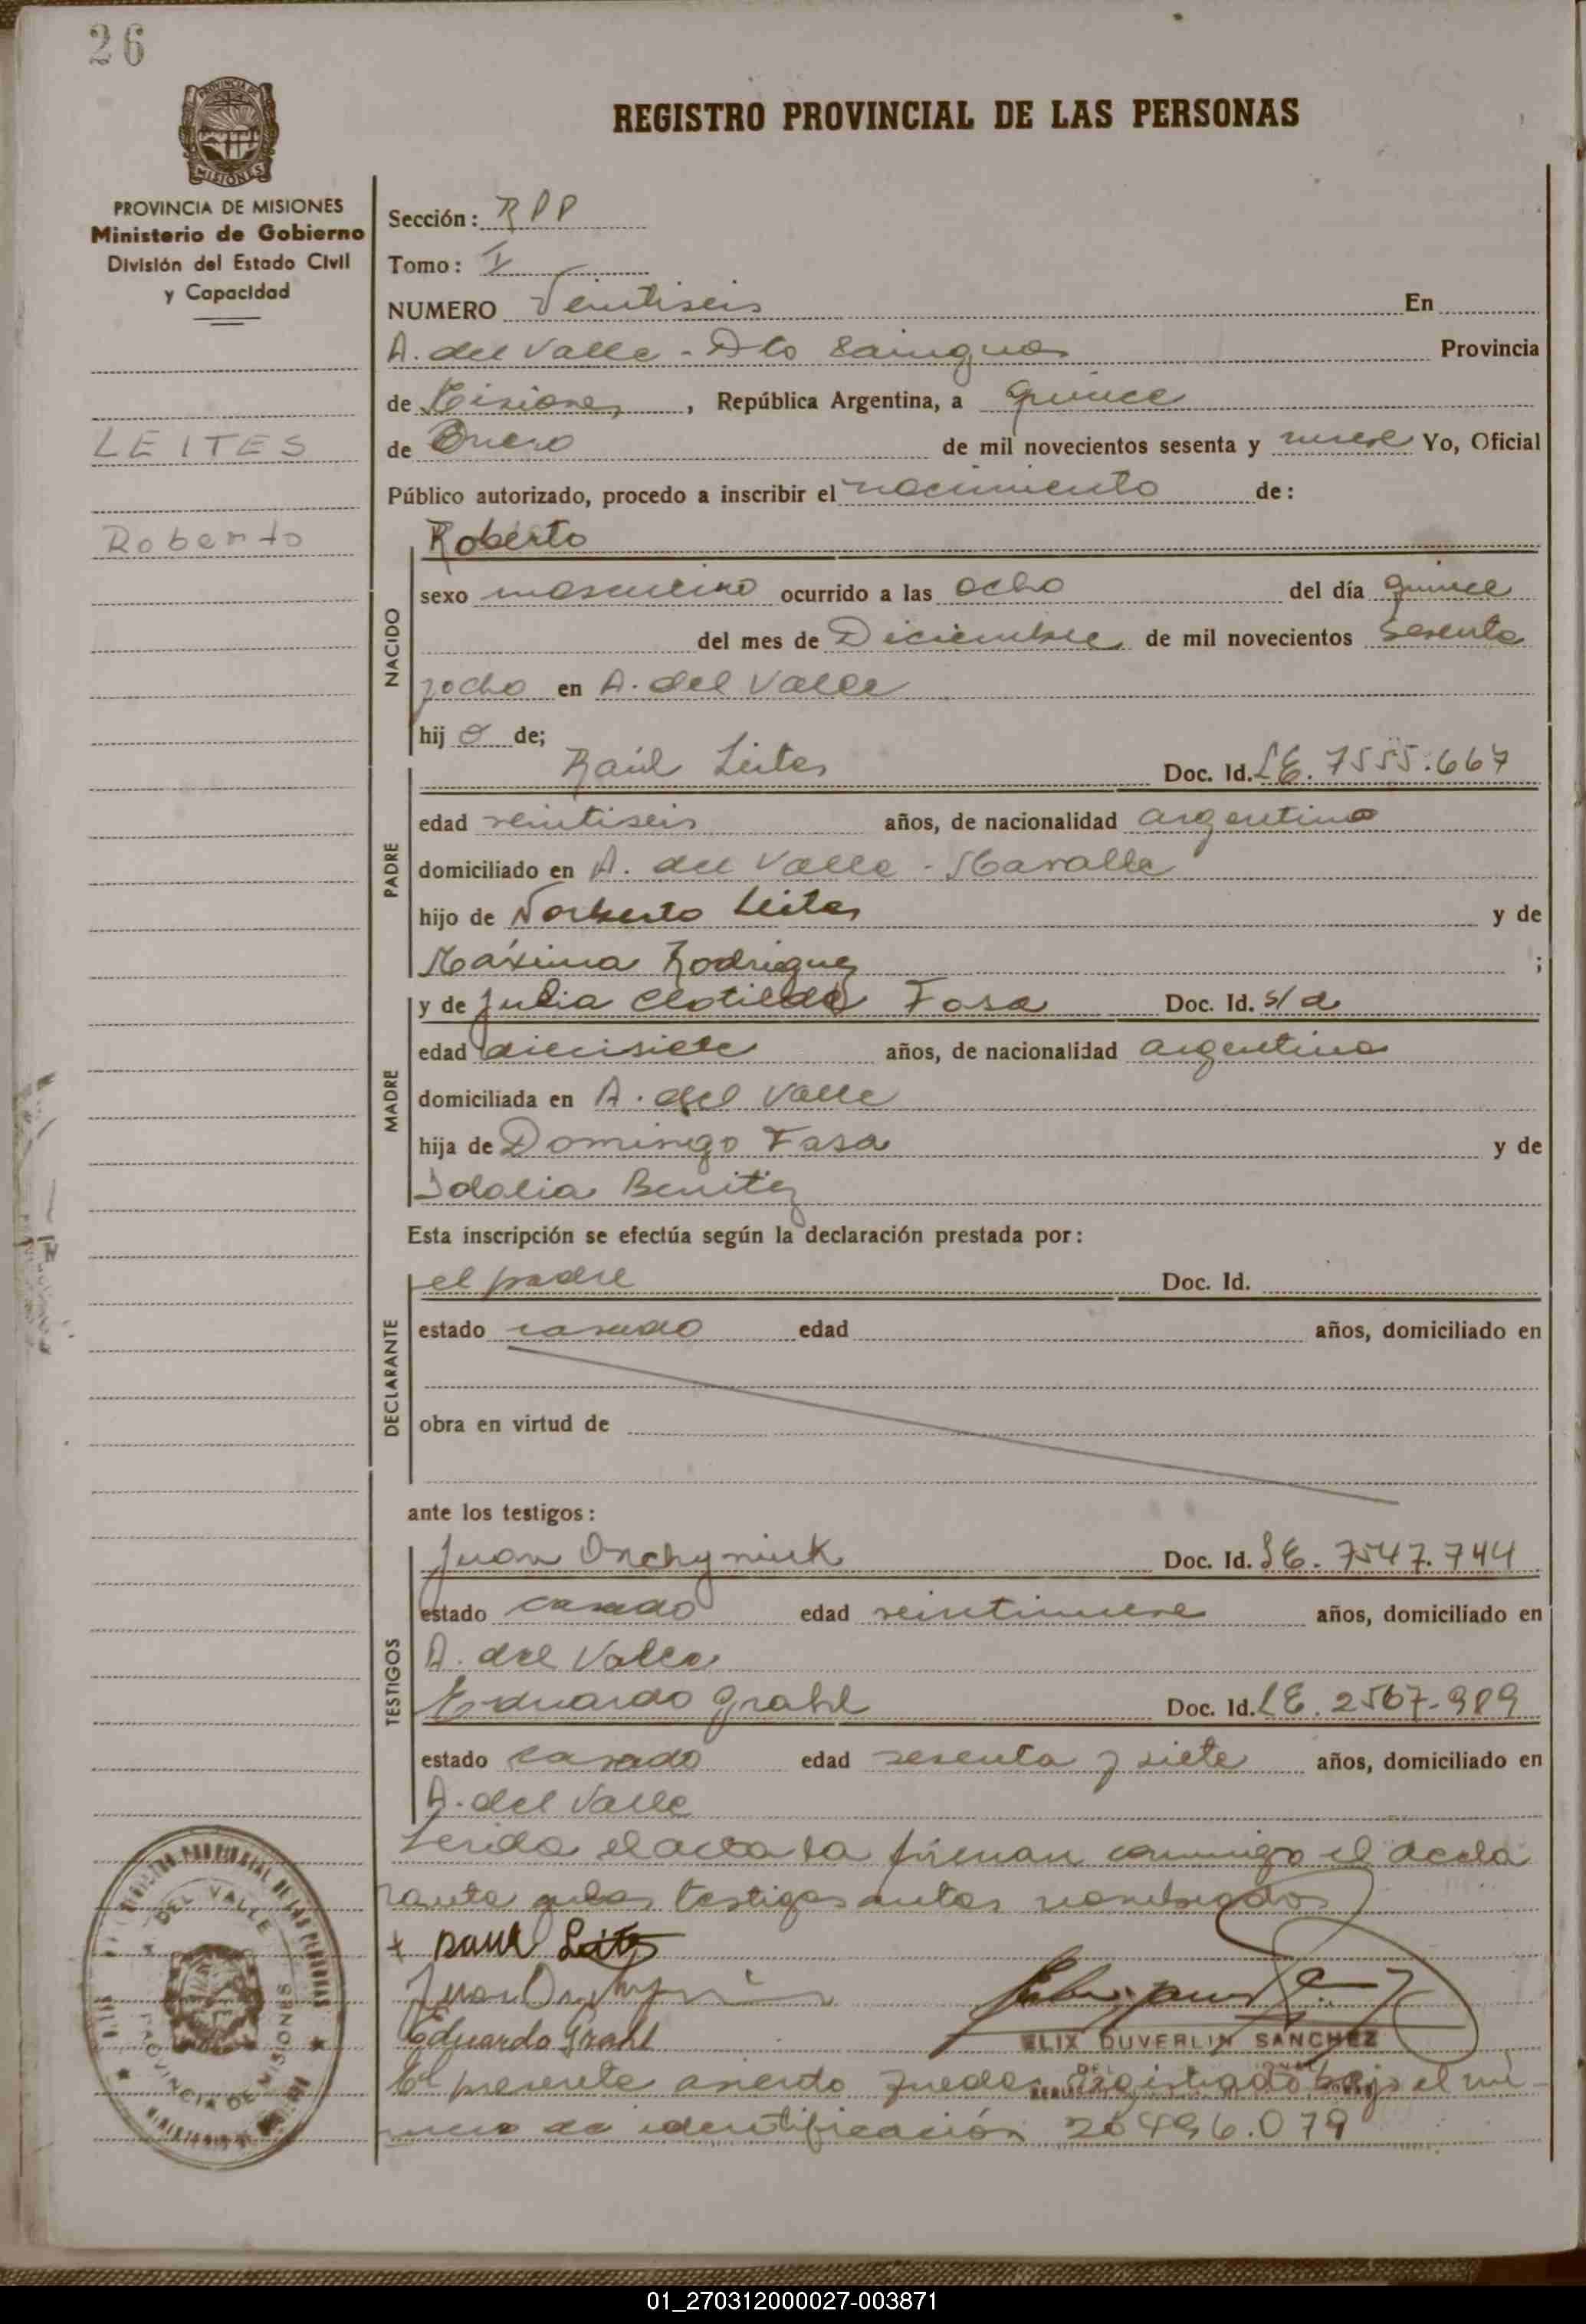 26
PROVINCIA DE MISIONES
Ministerio de Gobierno
División del Estado Civil
y Capacidad
LEITES
Roberto
REGISTRO PROVINCIAL DE LAS PERSONAS
Sección: RPP
Tomo: I
NUMERO Veintiseis En
A. del Valle - Dto Cainguas Provincia
de Misiones, República Argentina, a quince
de Enero de mil novecientos sesenta y nueve Yo, Oficial
Público autorizado, procedo a inscribir el nacimiento de:
NACIDO
Roberto
sexo masculino ocurrido a las ocho del día quince
del mes de Diciembre de mil novecientos sesenta
yocho en A. del Valle
hij o de;
PADRE
Raúl Leites Doc. Id. LE. 7555.667
edad veintiseis años, de nacionalidad argentina
domiciliado en A. del Valle -
hijo de Norberto Leites y de
Máxima Rodriguez ;
MADRE
y de Julia Clotilde Fasa Doc. Id. s/d
edad diecisiete años, de nacionalidad argentina
domiciliada en A. del Valle
hija de Domingo Fasa y de
Idalia Benitez
Esta inscripción se efectúa según la declaración prestada por:
DECLARANTE
el padre Doc. Id.
estado casado edad años, domiciliado en
obra en virtud de
ante los testigos:
TESTIGOS
Juan Onchyniuk Doc. Id. LE. 7547.744
estado casado edad veintinueve años, domiciliado en
A. del Valle
Eduardo Grahl Doc. Id. LE. 2567.989
estado casado edad sesenta y siete años, domiciliado en
A. del Valle
Leida el acta la firman conmigo el decla
rante y los testigos antes nombrados
+ Raul Leites
Juan
Eduardo Grahl
ELIX DUVERLIN SANCHEZ
El presente asiento queda registrado bajo el nú-
mero de identificación 20496.079
A. DEL VALLE
PROVINCIA DE MISIONES
01_270312000027-003871